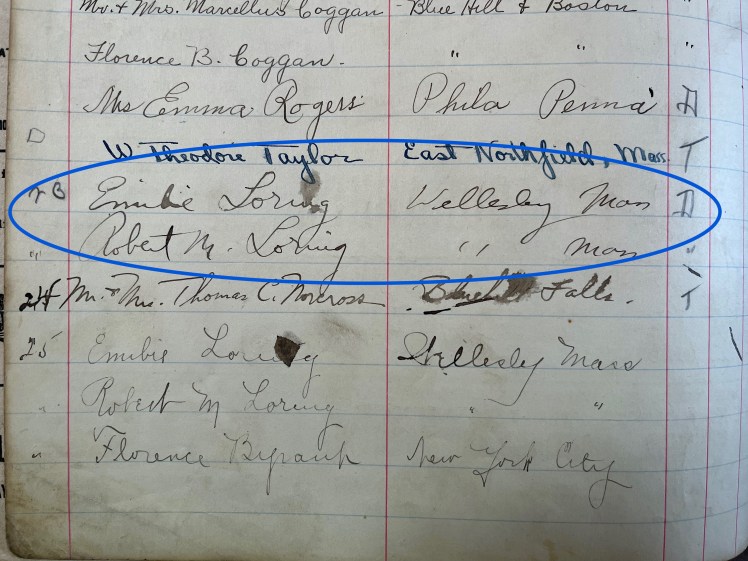 Mr. + Mrs. Marcellus Coggan - Blue Hill & Boston
Florence B. Coggan. " " "
Mrs Emma Rogers Phila Penna D
D
W. Theodore Taylor East Northfield, Mass. T
23 Emilie Loring Wellesley Mass D
" Robert M. Loring " Mass "
24 Mr. + Mrs. Thomas C. Norcross Bluehill Falls. T
25 Emilie Loring Wellesley Mass
" Robert M Loring " "
" Florence New York City